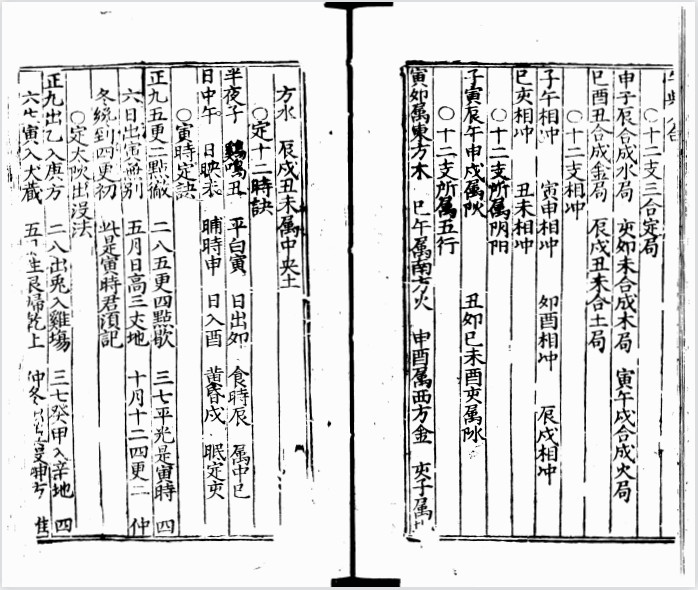 ○十二支三合定局
申子辰合成水局 亥卯未合成木局 寅午戌合成火局
巳酉丑合成金局 辰戌丑未合土局
○十二支相冲
子午相冲 寅申相冲 卯酉相冲 辰戌相冲
巳亥相冲 丑未相冲
○十二支所属阴阳
子寅辰午申戌属阳 丑卯巳未酉亥属阴
○十二支所属五行
寅卯属東方木 巳午属南方火 申酉属西方金 亥子属
方水 辰戌丑未属中央土
○定十二時訣
半夜子 鷄鳴丑 平白寅 日出卯 食時辰 属中巳
日中午 日昳未 晡時申 日入酉 黄昏戌 眠定亥
○寅時定訣
正九五更二點徹 二八五更四點歇 三七平光是寅時 四
六日出寅無别 五月日高三丈地 十月十二四更二 仲
冬纔到四更初 此是寅時君湏記
○定太阳出没法
正九出乙入庚方 二八出兎入雞塲 三七癸甲入辛地 四
六生寅入犬藏 五 生艮歸乾上 仲冬出